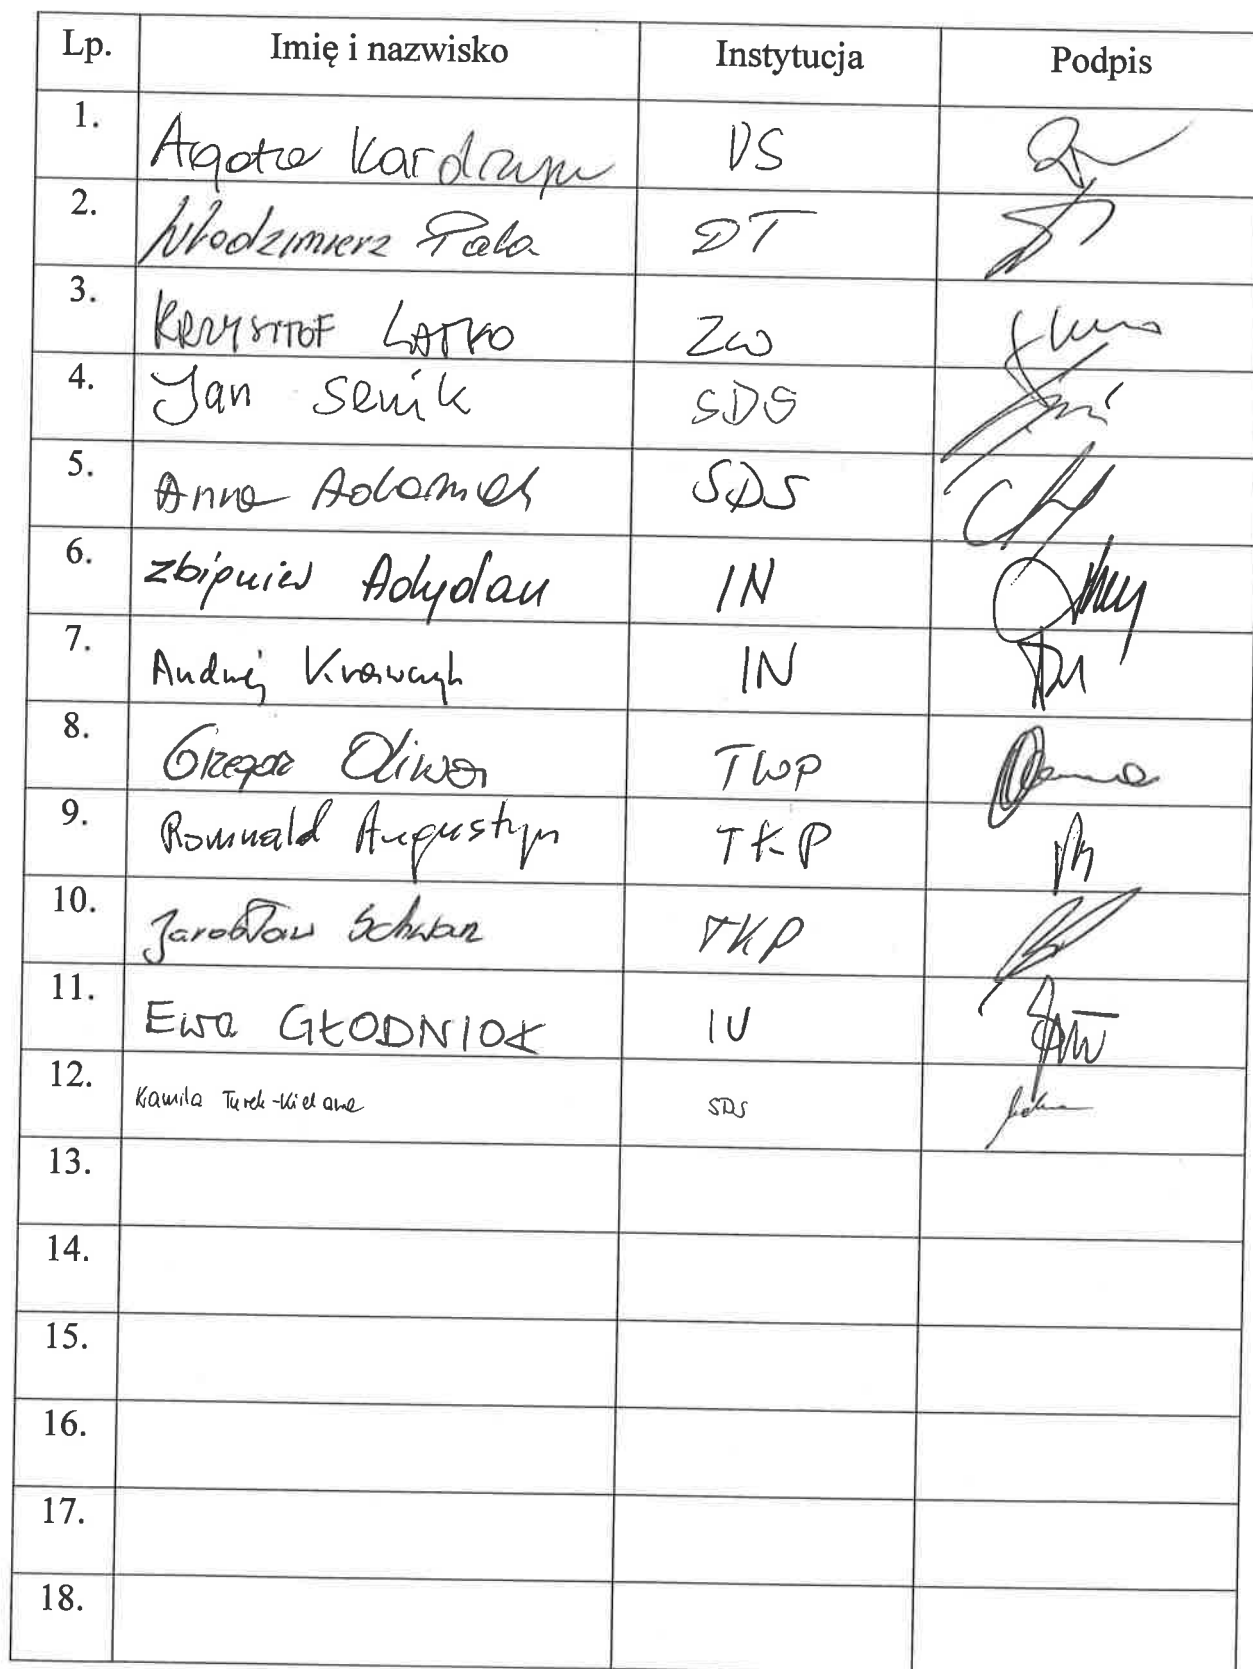 Lp. Imię i nazwisko Instytucja Podpis
1. Agata DS
2. Włodzimierz Pala DT
3. KRZYSZTOF LATKO ZW
4. Jan Senik SDS
5. Anna Adamek SDS
6. Zbigniew IN
7. Andrzej Krawczyk IN
8. Grzegorz Oliwa TWP
9. Romuald Augustyn TKP
10. Jarosław Schwan TKP
11. Ewa GŁODNIOK IU
12. Kamila Turek- SDS
13.
14.
15.
16.
17.
18.